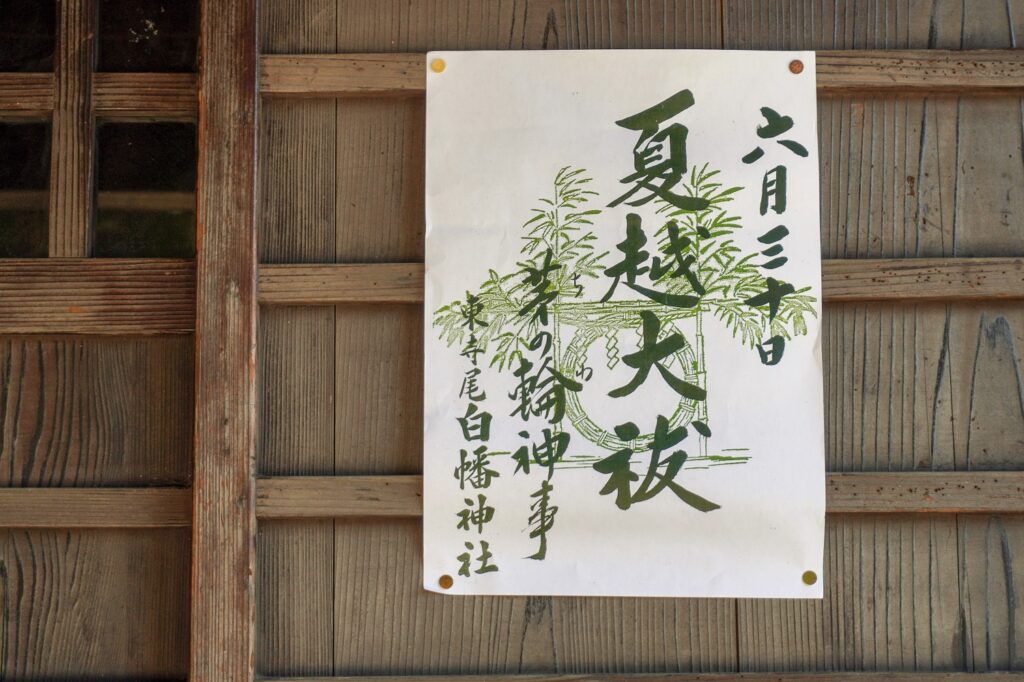 六月三十日
夏越大祓
茅の輪神事
ち
わ
東寺尾白幡神社